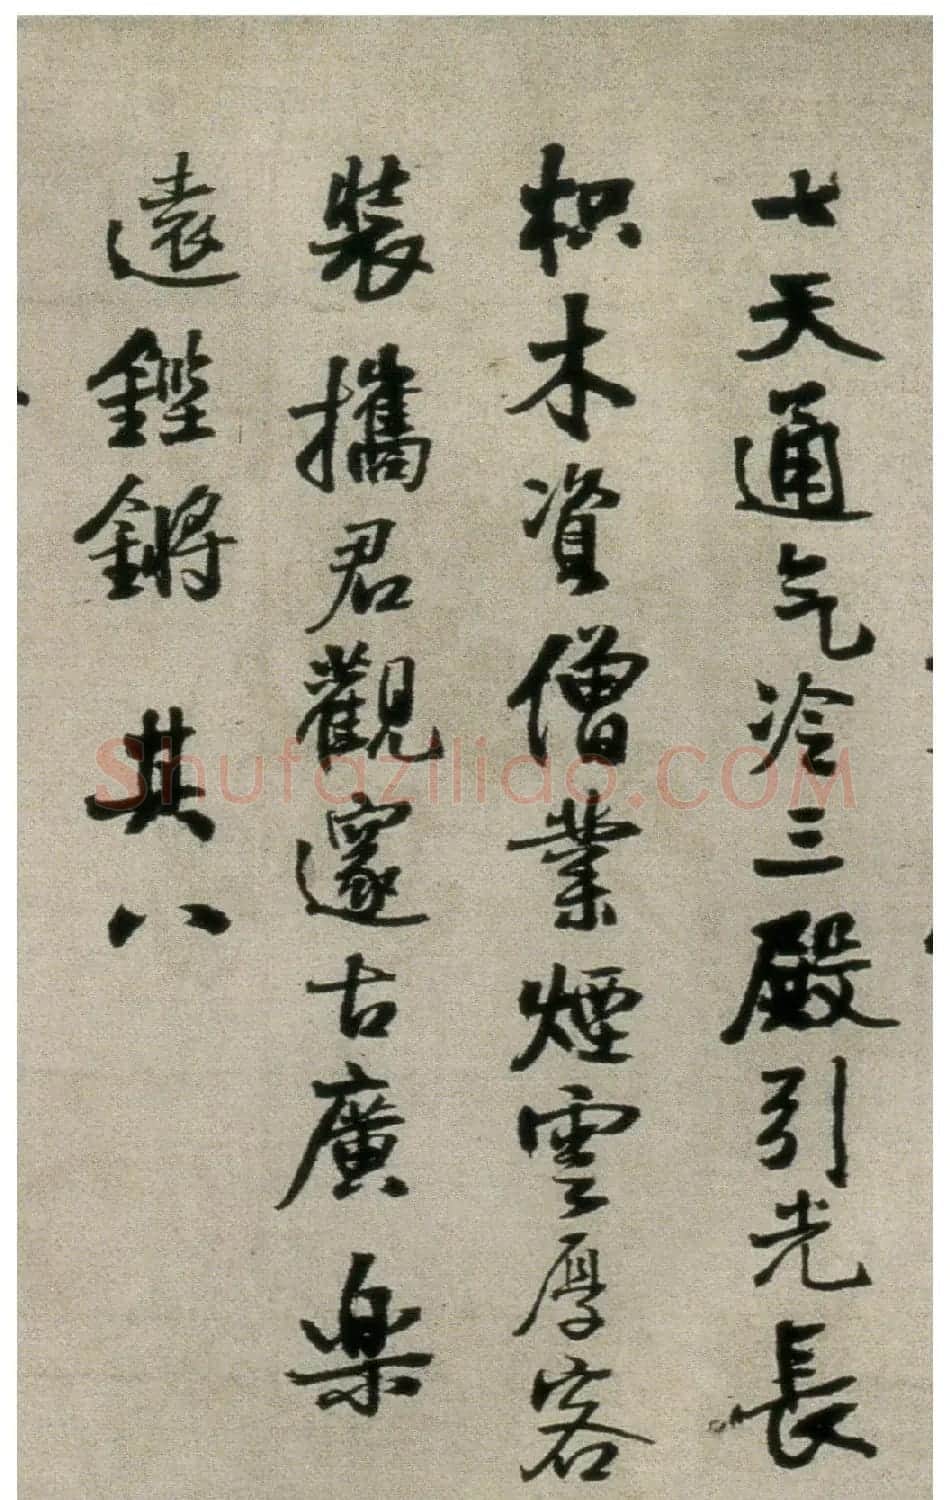 七天通气冷三殿引光長
枳木資僧業煙雲厚客
裝攜君觀邃古廣樂
遠鏗鏘 其八
Shufaziliao.COM